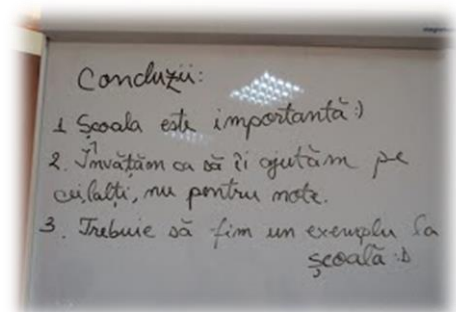 Concluzii:
1 Școala este importantă :)
2. Învățăm ca să îi ajutăm pe
ceilalți, nu pentru note.
3. Trebuie să fim un exemplu la
școală :D